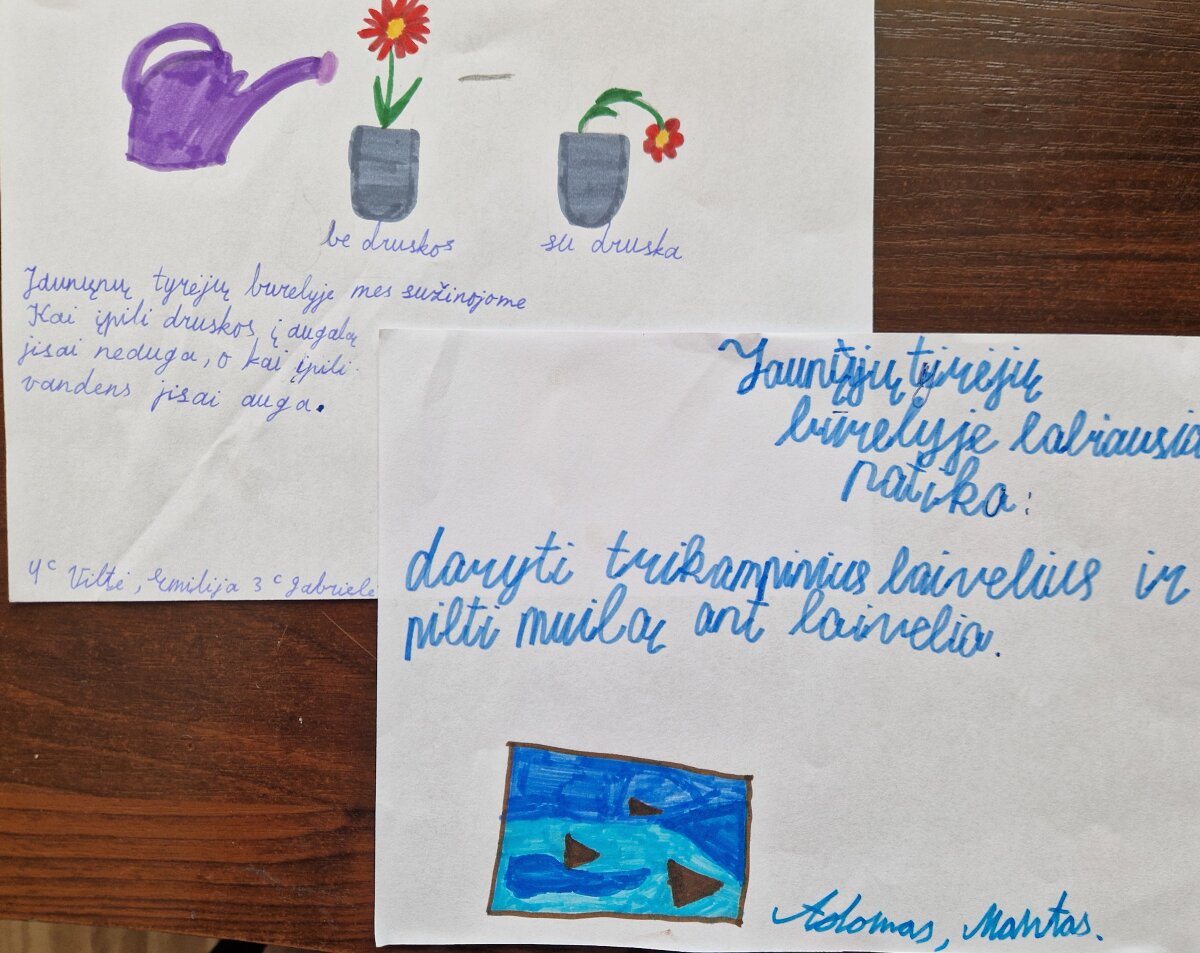 be druskos
su druska
Jdunųnų tyrėjų burelyje mes sužinojome
Kai įpili druskos į augalą
jisai neduga, o kai įpili
vandens jisai auga.
4c Viltė, Emilija 3c Gabriele
Jaunųjų tyrėjų
būrelyje labiausia
patika:
daryti trikampinius laivelius ir
pilti muilą ant laivelia.
Adomas, Mantas.